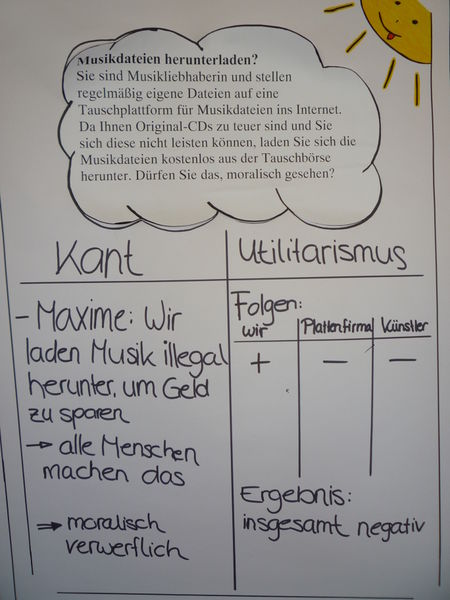 Musikdateien herunterladen?
Sie sind Musikliebhaberin und stellen
regelmäßig eigene Dateien auf eine
Tauschplattform für Musikdateien ins Internet.
Da Ihnen Original-CDs zu teuer sind und Sie
sich diese nicht leisten können, laden Sie sich die
Musikdateien kostenlos aus der Tauschbörse
herunter. Dürfen Sie das, moralisch gesehen?
Kant
- Maxime: Wir
laden Musik illegal
herunter, um Geld
zu sparen
→ alle Menschen
machen das
⇒ moralisch
verwerflich
Utilitarismus
Folgen:
wir Plattenfirma Künstler
+ - -
Ergebnis:
insgesamt negativ